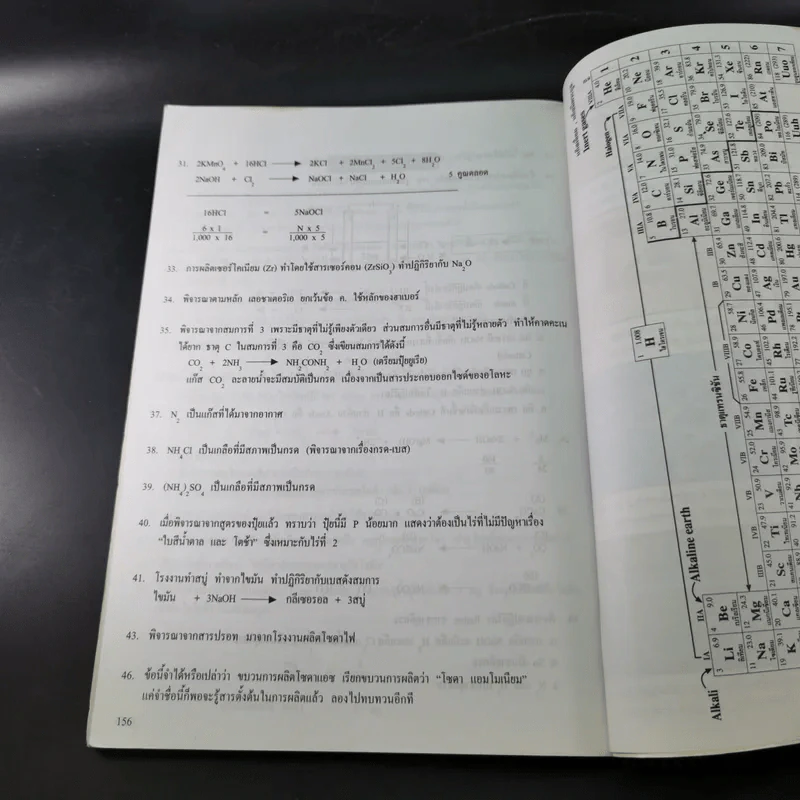 31. 2KMnO4 + 16HCl ⟶ 2KCl + 2MnCl2 + 5Cl2 + 8H2O
2NaOH + Cl2 ⟶ NaOCl + NaCl + H2O 5 คูณตลอด
16HCl = 5NaOCl
6 x 1 / 1,000 x 16 = N x 5 / 1,000 x 5
33. การผลิตเซอร์โคเนียม (Zr) ทำโดยใช้สารเซอร์คอน (ZrSiO3) ทำปฏิกิริยากับ Na2O
34. พิจารณาตามหลัก เลอชาเตอริเอ ยกเว้นข้อ ค. ใช้หลักของฮาเบอร์
35. พิจารณาจากสมการที่ 3 เพราะมีธาตุที่ไม่รู้เพียงตัวเดียว ส่วนสมการอื่นมีธาตุที่ไม่รู้หลายตัว ทำให้คาดคะเน
ได้ยาก ธาตุ C ในสมการที่ 3 คือ CO2 ซึ่งเขียนสมการได้ดังนี้
CO2 + 2NH3 ⟶ NH2CONH2 + H2O (เตรียมปุ๋ยยูเรีย)
แก๊ส CO2 ละลายน้ำจะมีสมบัติเป็นกรด เนื่องจากเป็นสารประกอบออกไซด์ของอโลหะ
37. N2 เป็นแก๊สที่ได้มาจากอากาศ
38. NH4Cl เป็นเกลือที่มีสภาพเป็นกรด (พิจารณาจากเรื่องกรด-เบส)
39. (NH4)2SO4 เป็นเกลือที่มีสภาพเป็นกรด
40. เมื่อพิจารณาจากสูตรของปุ๋ยแล้ว ทราบว่า ปุ๋ยนี้มี P น้อยมาก แสดงว่าต้องเป็นไร่ที่ไม่มีปัญหาเรื่อง
“ใบสีน้ำตาล และ โตช้า” ซึ่งเหมาะกับไร่ที่ 2
41. โรงงานทำสบู่ ทำจากไขมัน ทำปฏิกิริยากับเบสดังสมการ
ไขมัน + 3NaOH ⟶ กลีเซอรอล + 3สบู่
43. พิจารณาจากสารปรอท มาจากโรงงานผลิตโซดาไฟ
46. ข้อนี้จำได้หรือเปล่าว่า ขบวนการผลิตโซดาแอซ เรียกขบวนการผลิตว่า “โซดา แอมโมเนียม”
แค่จำชื่อนี้ก็พอจะรู้สารตั้งต้นในการผลิตแล้ว ลองไปทบทวนอีกที
156
Alkali
Alkaline earth
Halogen
Inert gases
ธาตุแทรนซิชัน
IA
IIA
IIIB
IVB
VB
VIB
VIIB
VIIIB
IB
IIB
IIIA
IVA
VA
VIA
VIIA
VIIIA
1 1.008
H
ไฮโดรเจน
Li
Be
Na
Mg
K
Ca
Sc
Ti
V
Cr
Mn
Fe
Co
Ni
Cu
Zn
Ga
Ge
As
Se
Br
Kr
B
C
N
O
F
Ne
He
Al
Si
P
S
Cl
Ar
Nb
Mo
Tc
Ru
Rh
Pd
Ag
Cd
In
Sn
Sb
Te
I
Xe
Pt
Au
Hg
Tl
Pb
Bi
Po
At
Rn
Uuh
Uuo
1
2
3
4
5
6
7